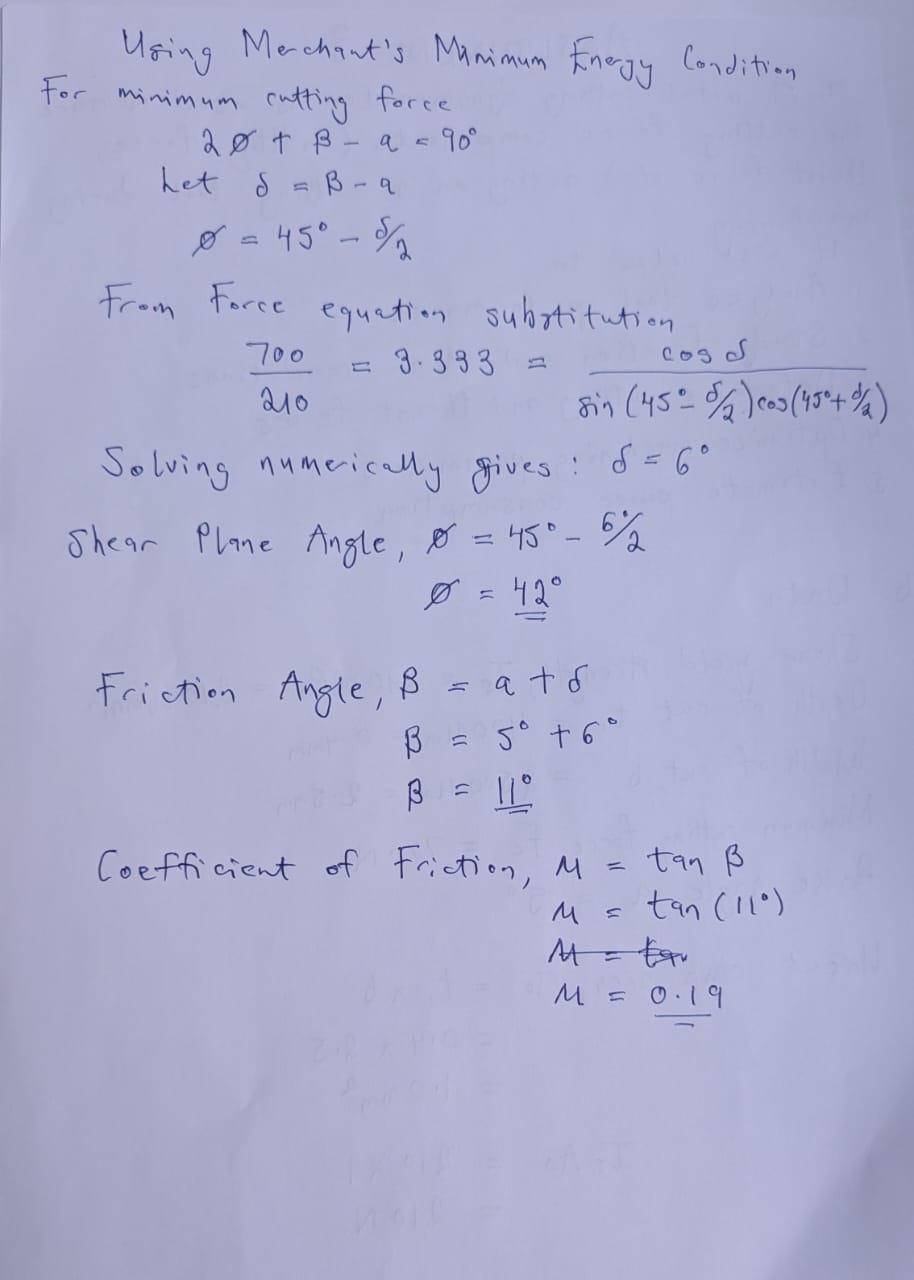 Using Merchant's Minimum Energy Condition
For minimum cutting force
2ø + β - a = 90°
Let δ = β - a
ø = 45° - δ/2
From Force equation substitution
700/210 = 3.333 = cos δ / sin (45° - δ/2) cos (45° + δ/2)
Solving numerically gives: δ = 6°
Shear Plane Angle, ø = 45° - 6°/2
ø = 42°
Friction Angle, β = a + δ
β = 5° + 6°
β = 11°
Coefficient of Friction, M = tan β
M = tan (11°)
M = tan
M = 0.19